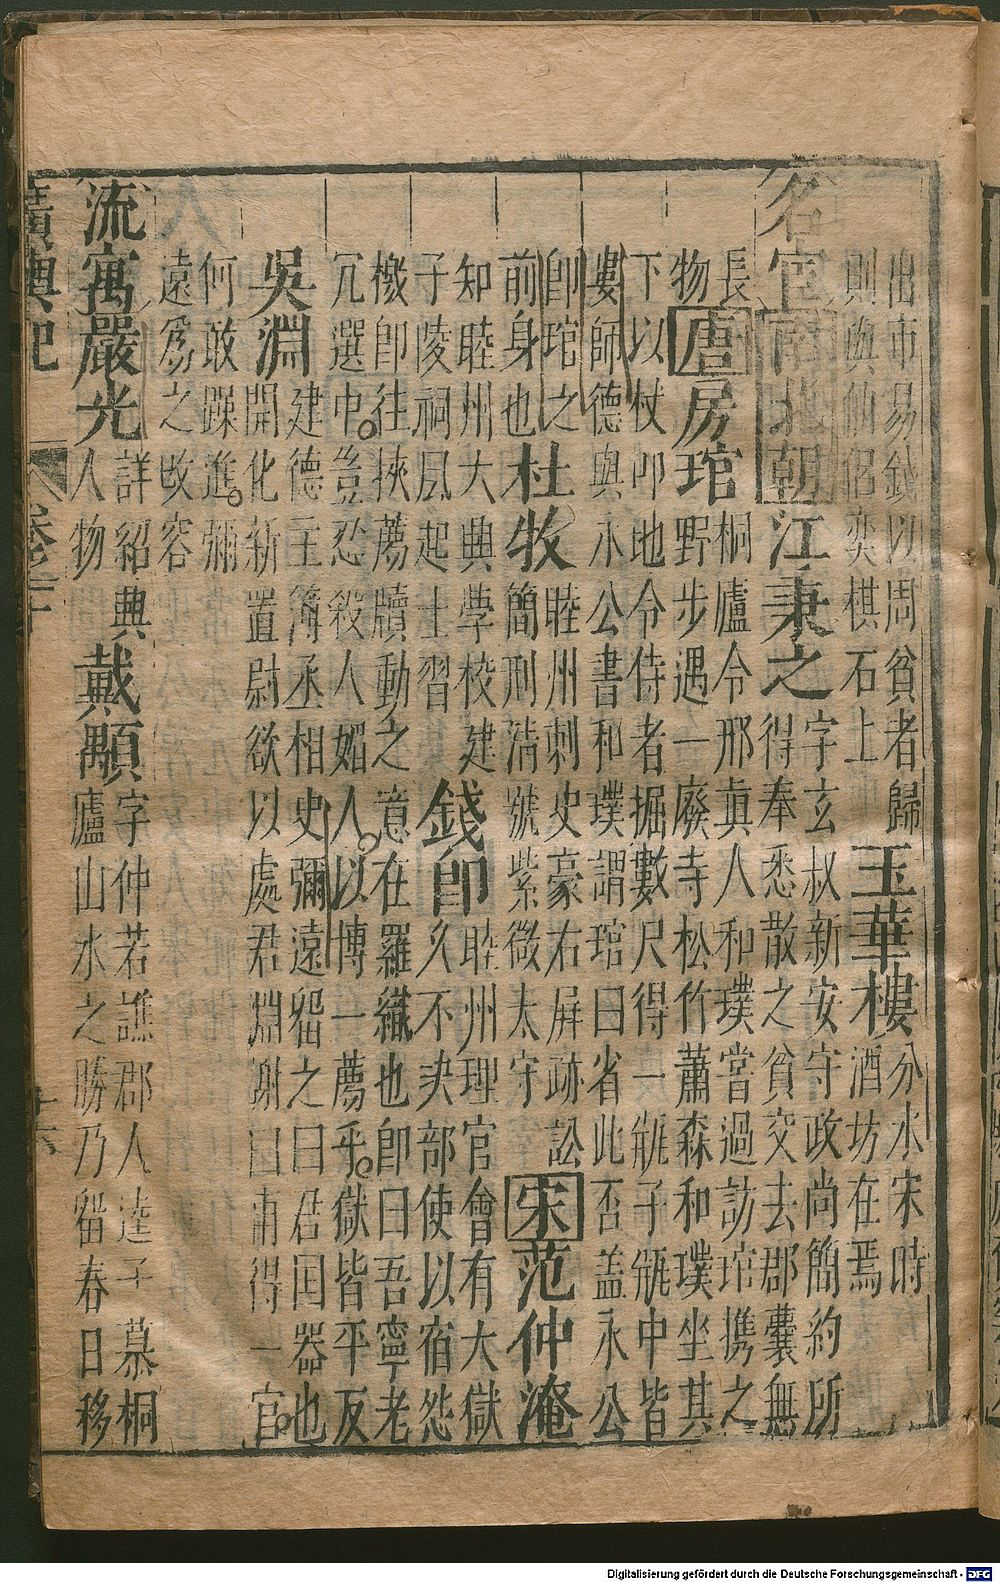 出市易錢以周貧者歸
則與仙侶奕棋石上
玉華樓
分水宋時
酒坊在焉
名宦南北朝江秉之
字玄叔新安守政尚簡約所
得奉悉散之貧交去郡囊無
長
物
唐房琯
桐廬令邢眞人和璞嘗過訪琯携之
野步遇一廢寺松竹蕭森和璞坐其
下以杖叩地令侍者掘數尺得一瓶子瓶中皆
婁師德與永公書和璞謂琯曰省此否盖永公
卽琯之
前身也
杜牧
睦州刺史豪右屏跡訟
簡刑淸號紫微太守
宋范仲淹
知睦州大興學校建
子陵祠風起士習
錢卽
睦州理官會有大獄
久不決部使以宿怨
檄卽往挾薦牘動之意在羅織也卽曰吾寧老
冗選中豈忍殺人媚人以博一薦乎獄皆平反
吳淵
建德主簿丞相史彌遠留之曰君囯器也
開化新置尉欲以處君淵謝曰甫得一官
何敢躁進彌
遠爲之改容
流寓嚴光
詳紹興
人物
戴顒
字仲若譙郡人逵子慕桐
廬山水之勝乃留春日移
廣輿記 卷之十 十六
Digitalisierung gefördert durch die Deutsche Forschungsgemeinschaft - DFG